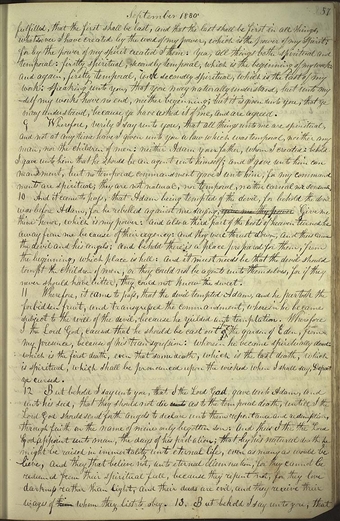 September 1880
37
fulfilled, that the first shall be last, and that the last shall be first in all things,
whatsoever I have created by the word of my power, which is the power of my Spirit;
for by the power of my spirit created I them: yea, all things both spiritual and
temporal: firstly spiritual, secondly temporal, which is the beginning of my work;
and again, firstly temporal, and secondly spiritual, which is the last of my
work: speaking unto you, that you may naturally understand, but unto my-
self my works have no end, neither beginning; but it is given unto you, that ye
may understand, because ye have asked it of me, and are agreed.
Wherefore, verily I say unto you, that all things unto me are spiritual,
and not at any time have I given unto you a law which was temporal, neither any
man, nor the children of men: neither Adam your father, whom I created: behold
I gave unto him that he should be an agent unto himself; and I gave unto him com-
mandment, but no temporal commandment gave I unto him; for my command
ments are spiritual; they are not natural, nor temporal, neither carnal nor sensual.
10 And it came to pass, that Adam being tempted of the devil, for behold the devil
was before Adam, for he rebelled against me saying, Give me
thine honor, which is my power: and also a third part of the hosts of heaven turned he
away from me because of their agency: and they were thrust down, and thus came
the devil and his angels; and behold there is a place prepared for them from
the beginning, which place is hell: And it must needs be that the devil should
tempt the children of men, or they could not be agents unto themselves, for if they
never should have bitter, they could not know the sweet.
11 Wherefore, it came to pass, that the devil tempted Adam, and he partook the
forbidden fruit, and transgressed the commandment, wherein he became
subject to the will of the devil, because he yielded unto temptation: Wherefore
I the Lord God, caused that he should be cast out of the garden of Eden, from
my presence, because of his transgression: wherein he became spiritually dead:
which is the first death, even that same death, which is the last death, which
is spiritual, which shall be pronounced upon the wicked when I shall say, Depart
ye cursed.
12 But behold I say unto you, that I the Lord God, gave unto Adam, and
unto his seed, that they should not die as to the temporal death, until I the
Lord God should send forth angels to declare unto them repentance and redemption,
through faith on the name of mine only begotten son: and thus I the Lord
God appoint unto man, the days of his probation; that by his natural death, he
might be raised in immortality unto eternal life, even as many as would be-
lieve, and they that believe not, unto eternal damnation, for they cannot be
redeemed from their spiritual fall, because they repent not, for they love
darkness rather than light, and their deeds are evil, and they receive their
wages of whom they list to obey. 13. But behold I say unto you, that